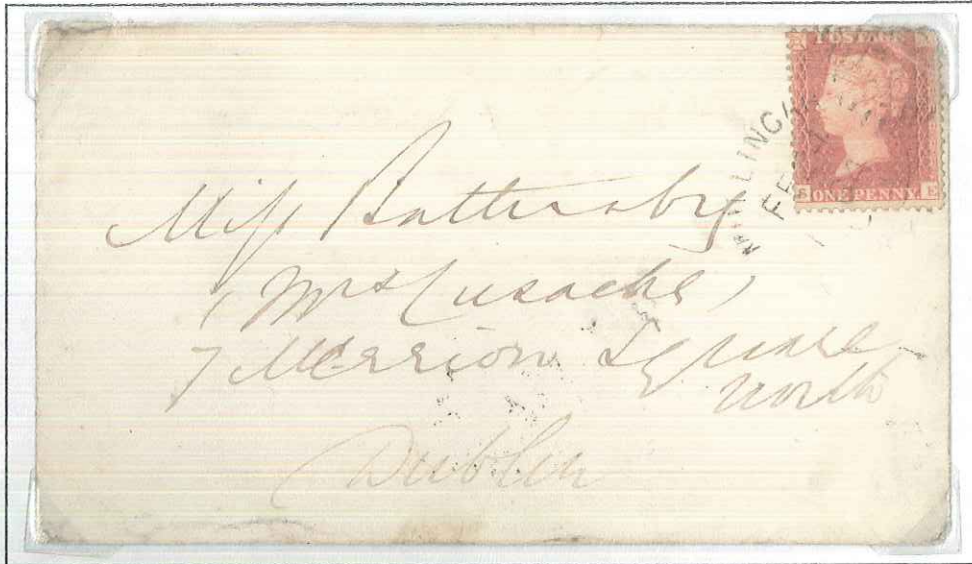 POSTAGE
ONE PENNY
E
Miss Battersby
(Mrs Cusacks)
7 Merrion Square
North
Dublin